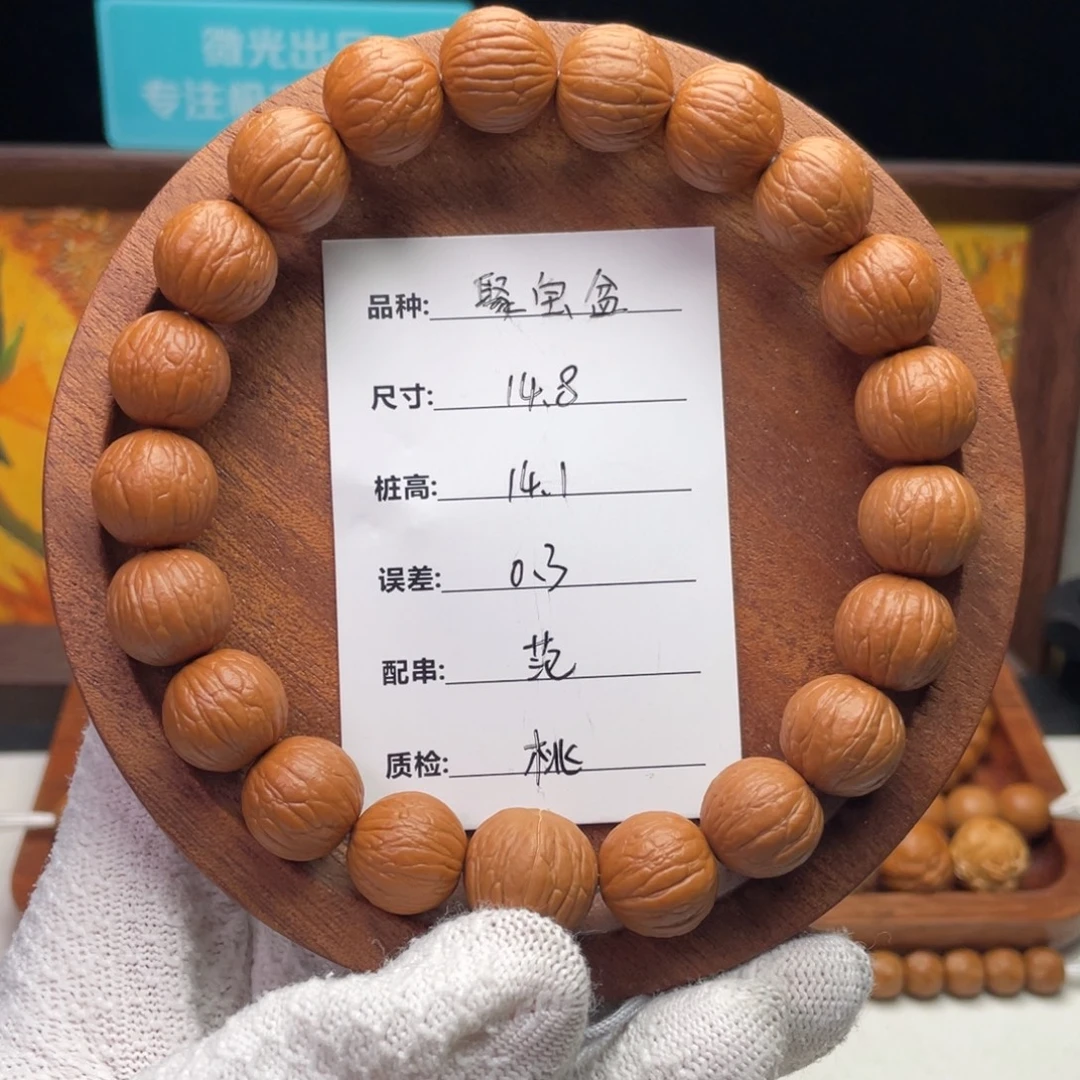 微光出品
专注
品种: 聚宝盆
尺寸: 14.8
桩高: 14.1
误差: 0.3
配串: 范
质检: 桃